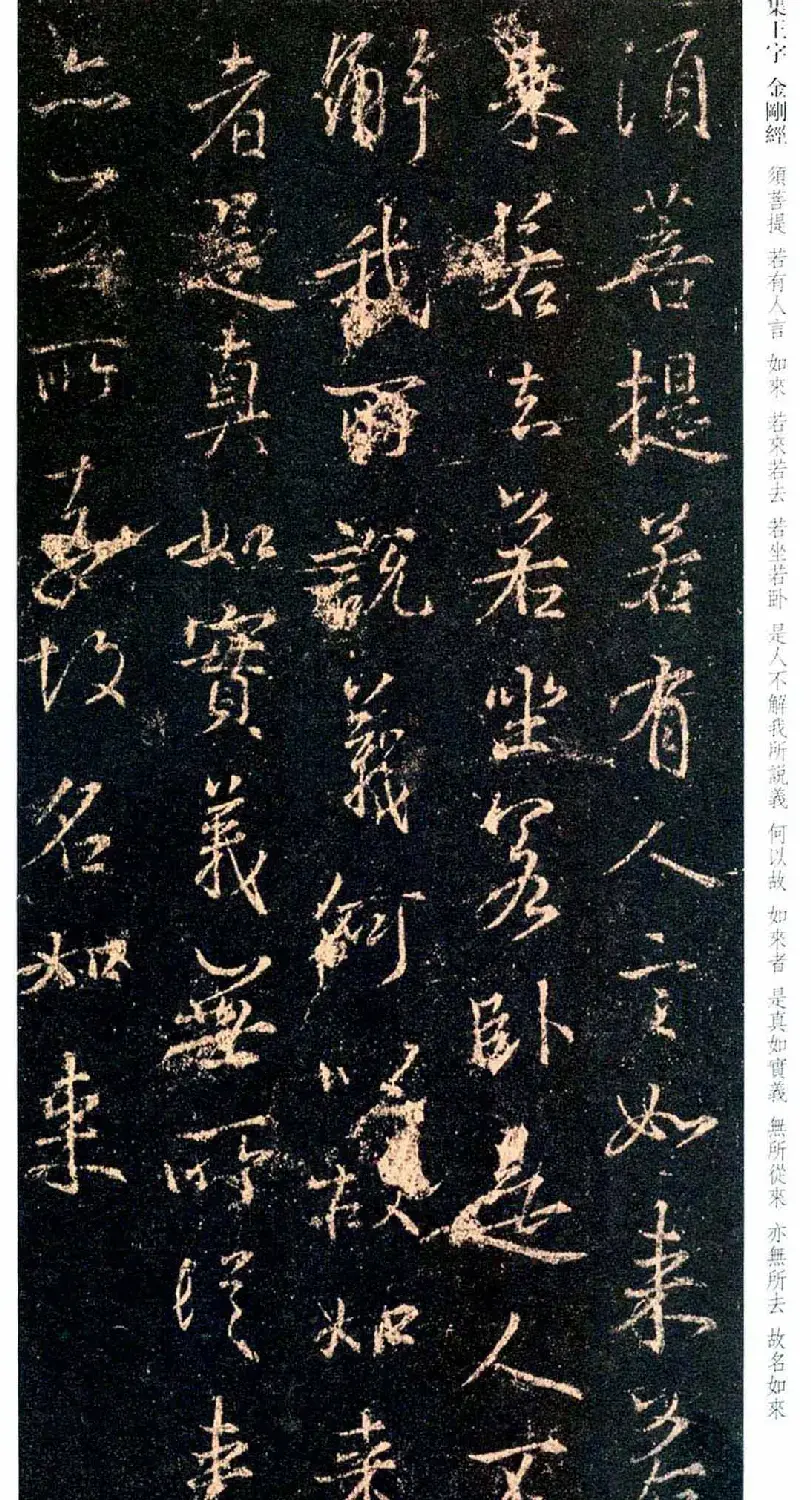 集王字 金剛經 須菩提 若有人言 如來 若來若去 若坐若卧 是人不解我所説義 何以故 如來者 是真如實義 無所從來 亦無所去 故名如來
須菩提若有人言如来若
来若去若坐若卧是人不
解我所說義何以故如来
者是真如實義無所從来
亦無所去故名如来